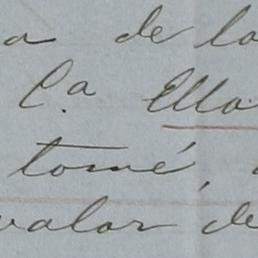 a de la
C.a Ella
tomé,
valor de